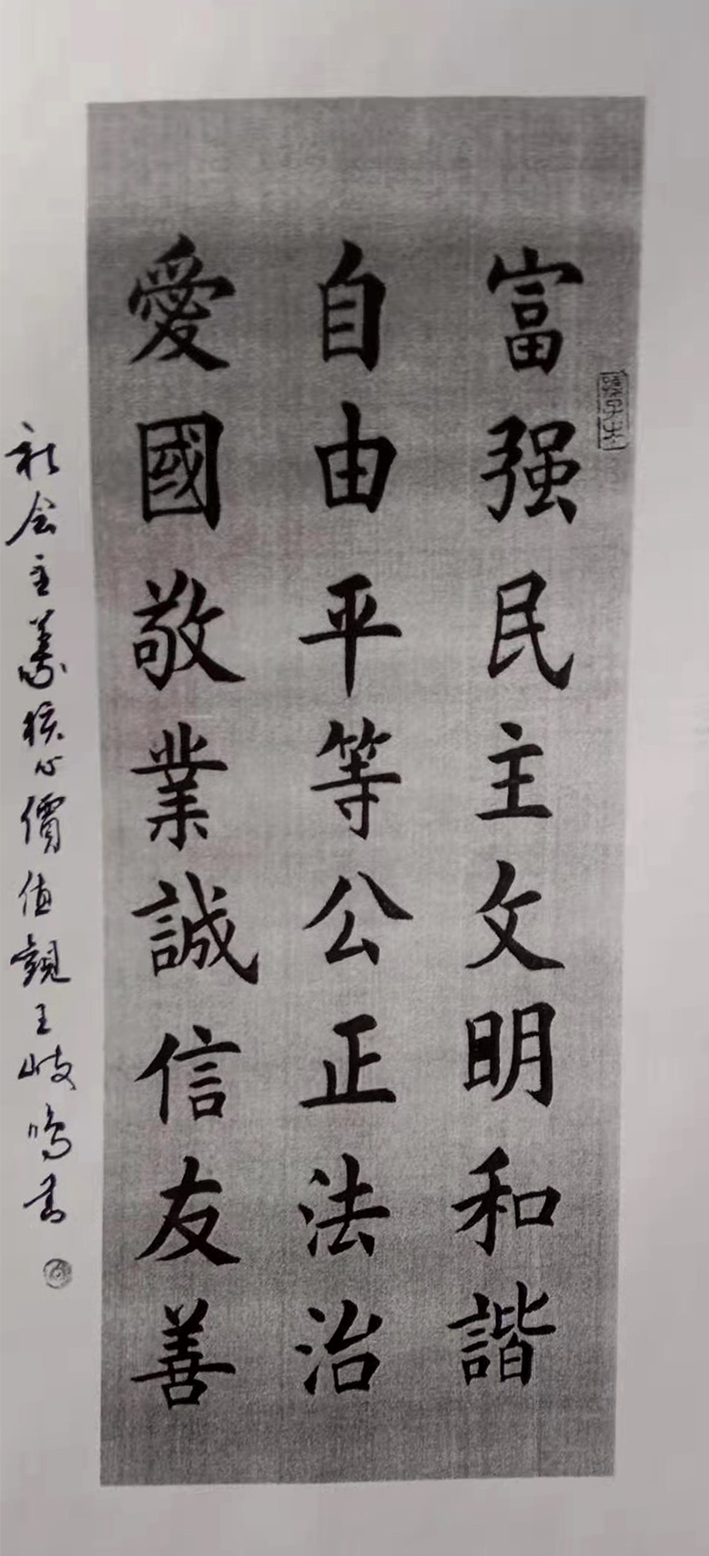 富强民主文明和諧
自由平等公正法治
愛國敬業誠信友善
社会主義核心價值觀王岐鳴書